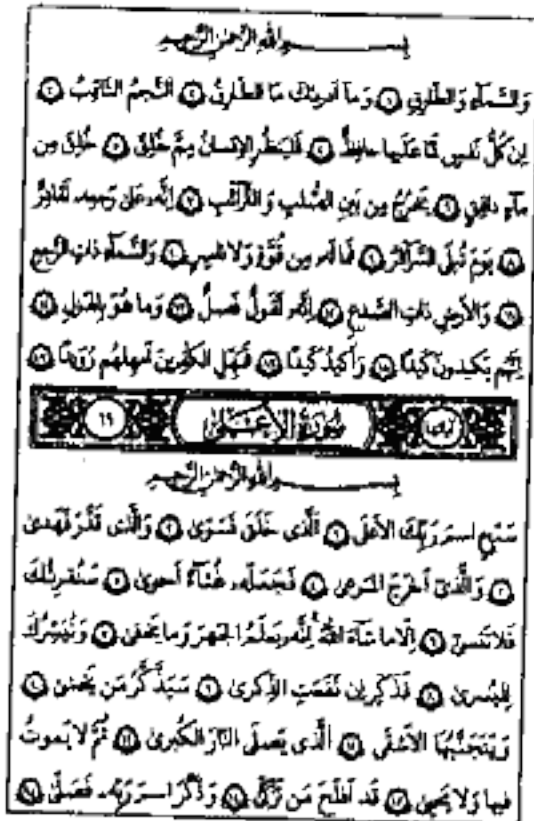 بِسْمِ اللَّهِ الرَّحْمَٰنِ الرَّحِيمِ
وَالسَّمَاءِ وَالطَّارِقِ ١ وَمَا أَدْرَاكَ مَا الطَّارِقُ ٢ النَّجْمُ الثَّاقِبُ ٣
إِن كُلُّ نَفْسٍ لَّمَّا عَلَيْهَا حَافِظٌ ٤ فَلْيَنظُرِ الْإِنسَانُ مِمَّ خُلِقَ ٥ خُلِقَ مِن
مَّاءٍ دَافِقٍ ٦ يَخْرُجُ مِن بَيْنِ الصُّلْبِ وَالتَّرَائِبِ ٧ إِنَّهُ عَلَىٰ رَجْعِهِ لَقَادِرٌ
٨ يَوْمَ تُبْلَى السَّرَائِرُ ٩ فَمَا لَهُ مِن قُوَّةٍ وَلَا نَاصِرٍ ١٠ وَالسَّمَاءِ ذَاتِ الرَّجْعِ
١١ وَالْأَرْضِ ذَاتِ الصَّدْعِ ١٢ إِنَّهُ لَقَوْلٌ فَصْلٌ ١٣ وَمَا هُوَ بِالْهَزْلِ ١٤
إِنَّهُمْ يَكِيدُونَ كَيْدًا ١٥ وَأَكِيدُ كَيْدًا ١٦ فَمَهِّلِ الْكَافِرِينَ أَمْهِلْهُمْ رُوَيْدًا ١٧
سُورَةُ الْأَعْلَىٰ
بِسْمِ اللَّهِ الرَّحْمَٰنِ الرَّحِيمِ
سَبِّحِ اسْمَ رَبِّكَ الْأَعْلَى ١ الَّذِي خَلَقَ فَسَوَّىٰ ٢ وَالَّذِي قَدَّرَ فَهَدَىٰ
٣ وَالَّذِي أَخْرَجَ الْمَرْعَىٰ ٤ فَجَعَلَهُ غُثَاءً أَحْوَىٰ ٥ سَنُقْرِئُكَ
فَلَا تَنسَىٰ ٦ إِلَّا مَا شَاءَ اللَّهُ إِنَّهُ يَعْلَمُ الْجَهْرَ وَمَا يَخْفَىٰ ٧ وَنُيَسِّرُكَ
لِلْيُسْرَىٰ ٨ فَذَكِّرْ إِن نَّفَعَتِ الذِّكْرَىٰ ٩ سَيَذَّكَّرُ مَن يَخْشَىٰ ١٠
وَيَتَجَنَّبُهَا الْأَشْقَى ١١ الَّذِي يَصْلَى النَّارَ الْكُبْرَىٰ ١٢ ثُمَّ لَا يَمُوتُ
فِيهَا وَلَا يَحْيَىٰ ١٣ قَدْ أَفْلَحَ مَن تَزَكَّىٰ ١٤ وَذَكَرَ اسْمَ رَبِّهِ فَصَلَّىٰ ١٥